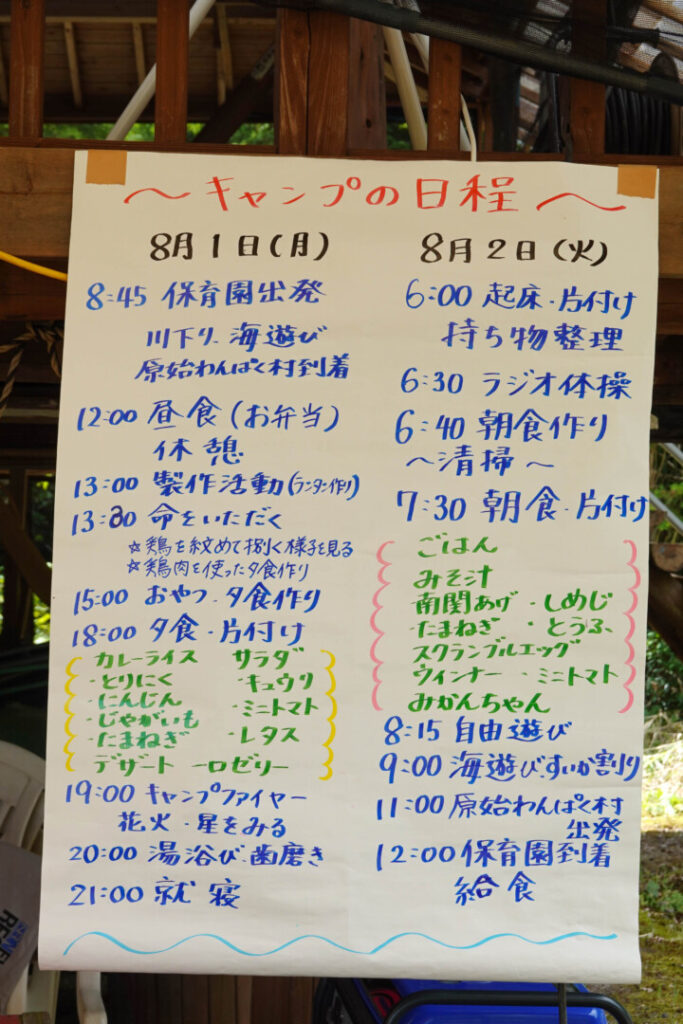 〜キャンプの日程〜
8月1日(月)
8:45 保育園出発
川下り、海遊び
原始わんぱく村到着
12:00 昼食(お弁当)
休憩
13:00 製作活動(ランタン作り)
13:30 命をいただく
☆鶏を絞めて捌く様子を見る
☆鶏肉を使った夕食作り
15:00 おやつ・夕食作り
18:00 夕食・片付け
カレーライス サラダ
・とりにく ・キュウリ
・にんじん ・ミニトマト
・じゃがいも ・レタス
・たまねぎ
デザート ーロゼリー
19:00 キャンプファイヤー
花火・星をみる
20:00 湯浴び、歯磨き
21:00 就寝
8月2日(火)
6:00 起床・片付け
持ち物整理
6:30 ラジオ体操
6:40 朝食作り
〜清掃〜
7:30 朝食・片付け
ごはん
みそ汁
南関あげ・しめじ
・たまねぎ ・とうふ
スクランブルエッグ
ウィンナー・ミニトマト
みかんちゃん
8:15 自由遊び
9:00 海遊び、すいか割り
11:00 原始わんぱく村
出発
12:00 保育園到着
給食